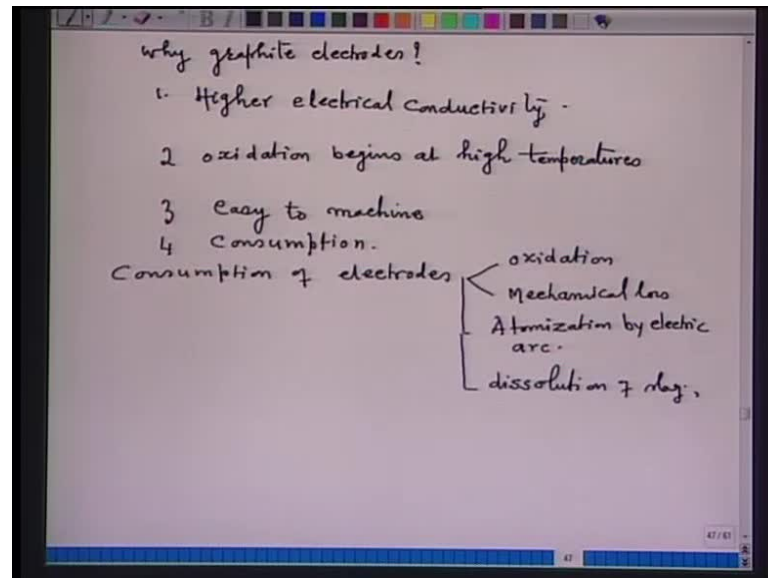 why graphite electrodes?
1. Higher electrical conductivity.
2 oxidation begins at high temperatures
3 easy to machine
4 consumption.
Consumption of electrodes
oxidation
Mechanical loss
Atomization by electric
arc.
dissolution of slag,
47/61
47